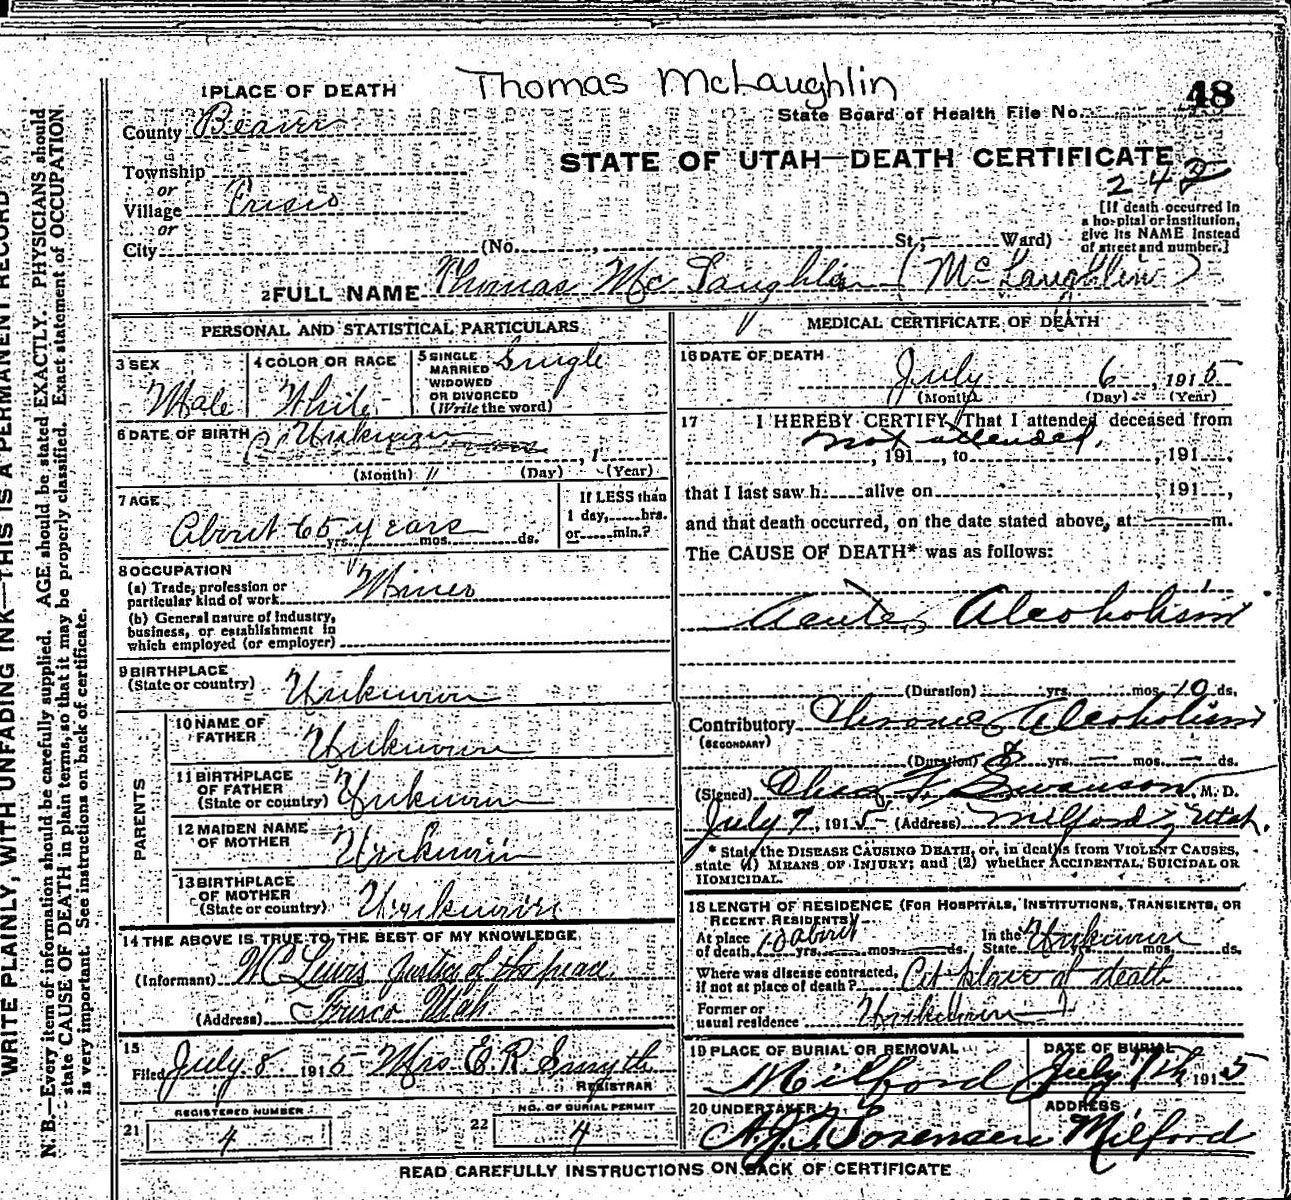 Thomas McLaughlin
48
State Board of Health File No.
STATE OF UTAH—DEATH CERTIFICATE
242
[If death occurred in
a hospital or institution,
give its NAME instead
of street and number.]
1 PLACE OF DEATH
County Beaver
Township
or
Village Frisco
or
City (No. , St.; Ward)
2 FULL NAME Thomas McLaughlin (McLaughlin)
PERSONAL AND STATISTICAL PARTICULARS
3 SEX
Male
4 COLOR OR RACE
White
5 SINGLE
MARRIED
WIDOWED
OR DIVORCED
(Write the word)
Single
6 DATE OF BIRTH
Unknown
, 1
(Month) (Day) (Year)
7 AGE
About 65 years
yrs. mos. ds.
If LESS than
1 day, hrs.
or min.?
8 OCCUPATION
(a) Trade, profession or
particular kind of work Miner
(b) General nature of industry,
business, or establishment in
which employed (or employer)
9 BIRTHPLACE
(State or country) Unknown
PARENTS
10 NAME OF
FATHER Unknown
11 BIRTHPLACE
OF FATHER
(State or country) Unknown
12 MAIDEN NAME
OF MOTHER Unknown
13 BIRTHPLACE
OF MOTHER
(State or country) Unknown
14 THE ABOVE IS TRUE TO THE BEST OF MY KNOWLEDGE
(Informant) Lewis Justice of the peace
(Address) Frisco Utah
15
Filed July 8 1915 Mrs E R Smyth
REGISTRAR
REGISTERED NUMBER
21 4
NO. OF BURIAL PERMIT
22 4
MEDICAL CERTIFICATE OF DEATH
16 DATE OF DEATH
July 6, 1915
(Month) (Day) (Year)
17 I HEREBY CERTIFY, That I attended deceased from
not attended.
, 191 , to , 191 ,
that I last saw h alive on , 191 ,
and that death occurred, on the date stated above, at m.
The CAUSE OF DEATH* was as follows:
Acute Alcoholism
(Duration) yrs. mos. 10 ds.
Contributory Chronic Alcoholism
(SECONDARY)
(Duration) yrs. — mos. — ds.
(Signed) Chas F. Swanson, M. D.
July 7, 1915 (Address) Milford, Utah.
* State the DISEASE CAUSING DEATH, or, in deaths from VIOLENT CAUSES,
state (1) MEANS OF INJURY; and (2) whether ACCIDENTAL, SUICIDAL OR
HOMICIDAL.
18 LENGTH OF RESIDENCE (FOR HOSPITALS, INSTITUTIONS, TRANSIENTS, OR
RECENT RESIDENTS)
At place
of death 10 about yrs. mos. ds.
In the
State Unknown yrs. mos. ds.
Where was disease contracted,
if not at place of death? At place of death
Former or
usual residence Unknown
19 PLACE OF BURIAL OR REMOVAL
Milford
DATE OF BURIAL
July 7th 1915
20 UNDERTAKER
Sorensen
ADDRESS
Milford
READ CAREFULLY INSTRUCTIONS ON BACK OF CERTIFICATE
WRITE PLAINLY, WITH UNFADING INK—THIS IS A PERMANENT RECORD
N. B.—Every item of information should be carefully supplied. AGE should be stated EXACTLY. PHYSICIANS should
state CAUSE OF DEATH in plain terms, so that it may be properly classified. Exact statement of OCCUPATION
is very important. See instructions on back of certificate.